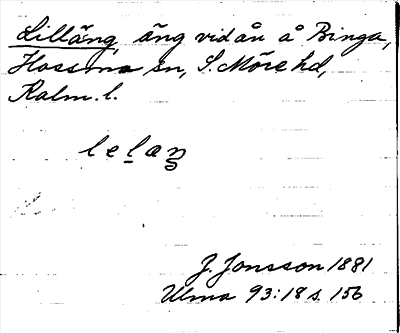 Lilläng, äng vid ån å Binga,
Hossmo sn, S. Möre hd,
Kalm. l.
J. Jonsson 1881
Ulma 93:18 s. 156